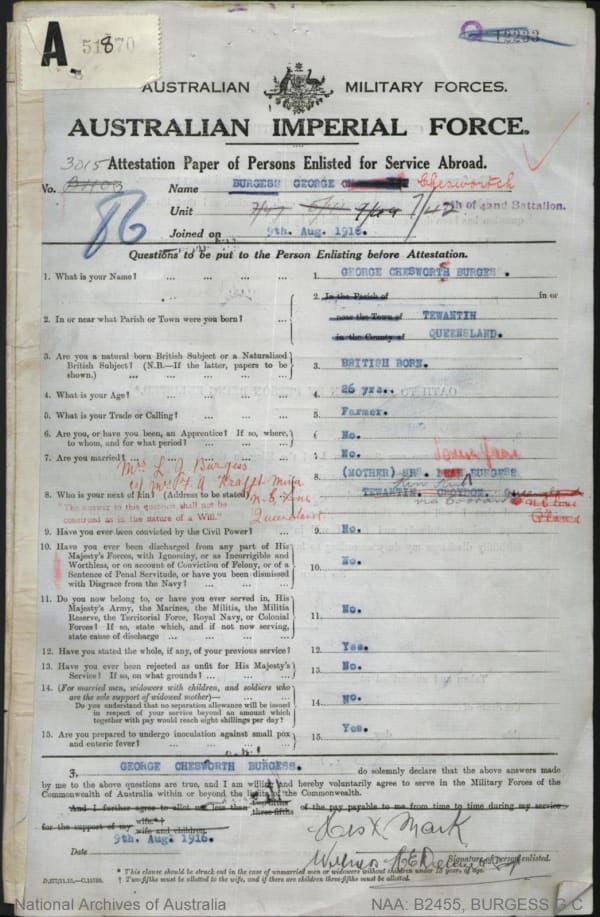 A 51870
12233
AUSTRALIAN MILITARY FORCES.
AUSTRALIAN IMPERIAL FORCE.
3015 Attestation Paper of Persons Enlisted for Service Abroad.
No. Name BURGESS GEORGE Chesworth
86 Unit 7/42 7th of 42nd Battalion.
Joined on 9th. Aug. 1916.
Questions to be put to the Person Enlisting before Attestation.
1. What is your Name? ... ... ... 1. GEORGE CHESWORTH BURGES .
2. In the Parish of in or
2. In or near what Parish or Town were you born? ... near the Town of TEWANTIN
in the County of QUEENSLAND.
3. Are you a natural born British Subject or a Naturalized
British Subject? (N.B.—If the latter, papers to be
shown.) 3. BRITISH BORN.
4. What is your Age? 4. 26 yrs..
5. What is your Trade or Calling? 5. Farmer.
6. Are you, or have you been, an Apprentice? If so, where,
to whom, and for what period? 6 No.
7. Are you married? 7 No.
Mrs L. J Burgess (MOTHER) MRS. BURGESS
c/ Mrs F. A Krafft
8. Who is your next of kin? (Address to be stated) 8. TEWANTIN. CROYDON.
"The answer to this question shall not
construed as in the nature of a Will." Queensland
9. Have you ever been convicted by the Civil Power? 9. No.
10. Have you ever been discharged from any part of His
Majesty's Forces, with Ignominy, or as Incorrigible and
Worthless, or on account of Conviction of Felony, or of a
Sentence of Penal Servitude, or have you been dismissed
with Disgrace from the Navy? 10. No.
11. Do you now belong to, or have you ever served in, His
Majesty's Army, the Marines, the Militia, the Militia
Reserve, the Territorial Force, Royal Navy, or Colonial
Forces? If so, state which, and if not now serving,
state cause of discharge 11. No.
12. Have you stated the whole, if any, of your previous service? 12. Yes.
13. Have you ever been rejected as unfit for His Majesty's
Service? If so, on what grounds? 13. No.
14. (For married men, widowers with children, and soldiers who
are the sole support of widowed mother)—
Do you understand that no separation allowance will be issued
in respect of your service beyond an amount which
together with pay would reach eight shillings per day? 14. No.
15. Are you prepared to undergo inoculation against small pox
and enteric fever? 15. Yes.
GEORGE CHESWORTH BURGESS. do solemnly declare that the above answers made
by me to the above questions are true, and I am willing and hereby voluntarily agree to serve in the Military Forces of the
Commonwealth of Australia within or beyond the limits of the Commonwealth.
And I further agree to allot not less than two-fifths three-fifths of the pay payable to me from time to time during my service
for the support of my wife* wife and children.
His X Mark
9th. Aug. 1916.
Date
Signature of person enlisted.
* This clause should be struck out in the case of unmarried men or widowers without children under 18 years of age.
† Two-fifths must be allotted to the wife, and if there are children three-fifths must be allotted.
National Archives of Australia NAA: B2455, BURGESS G C